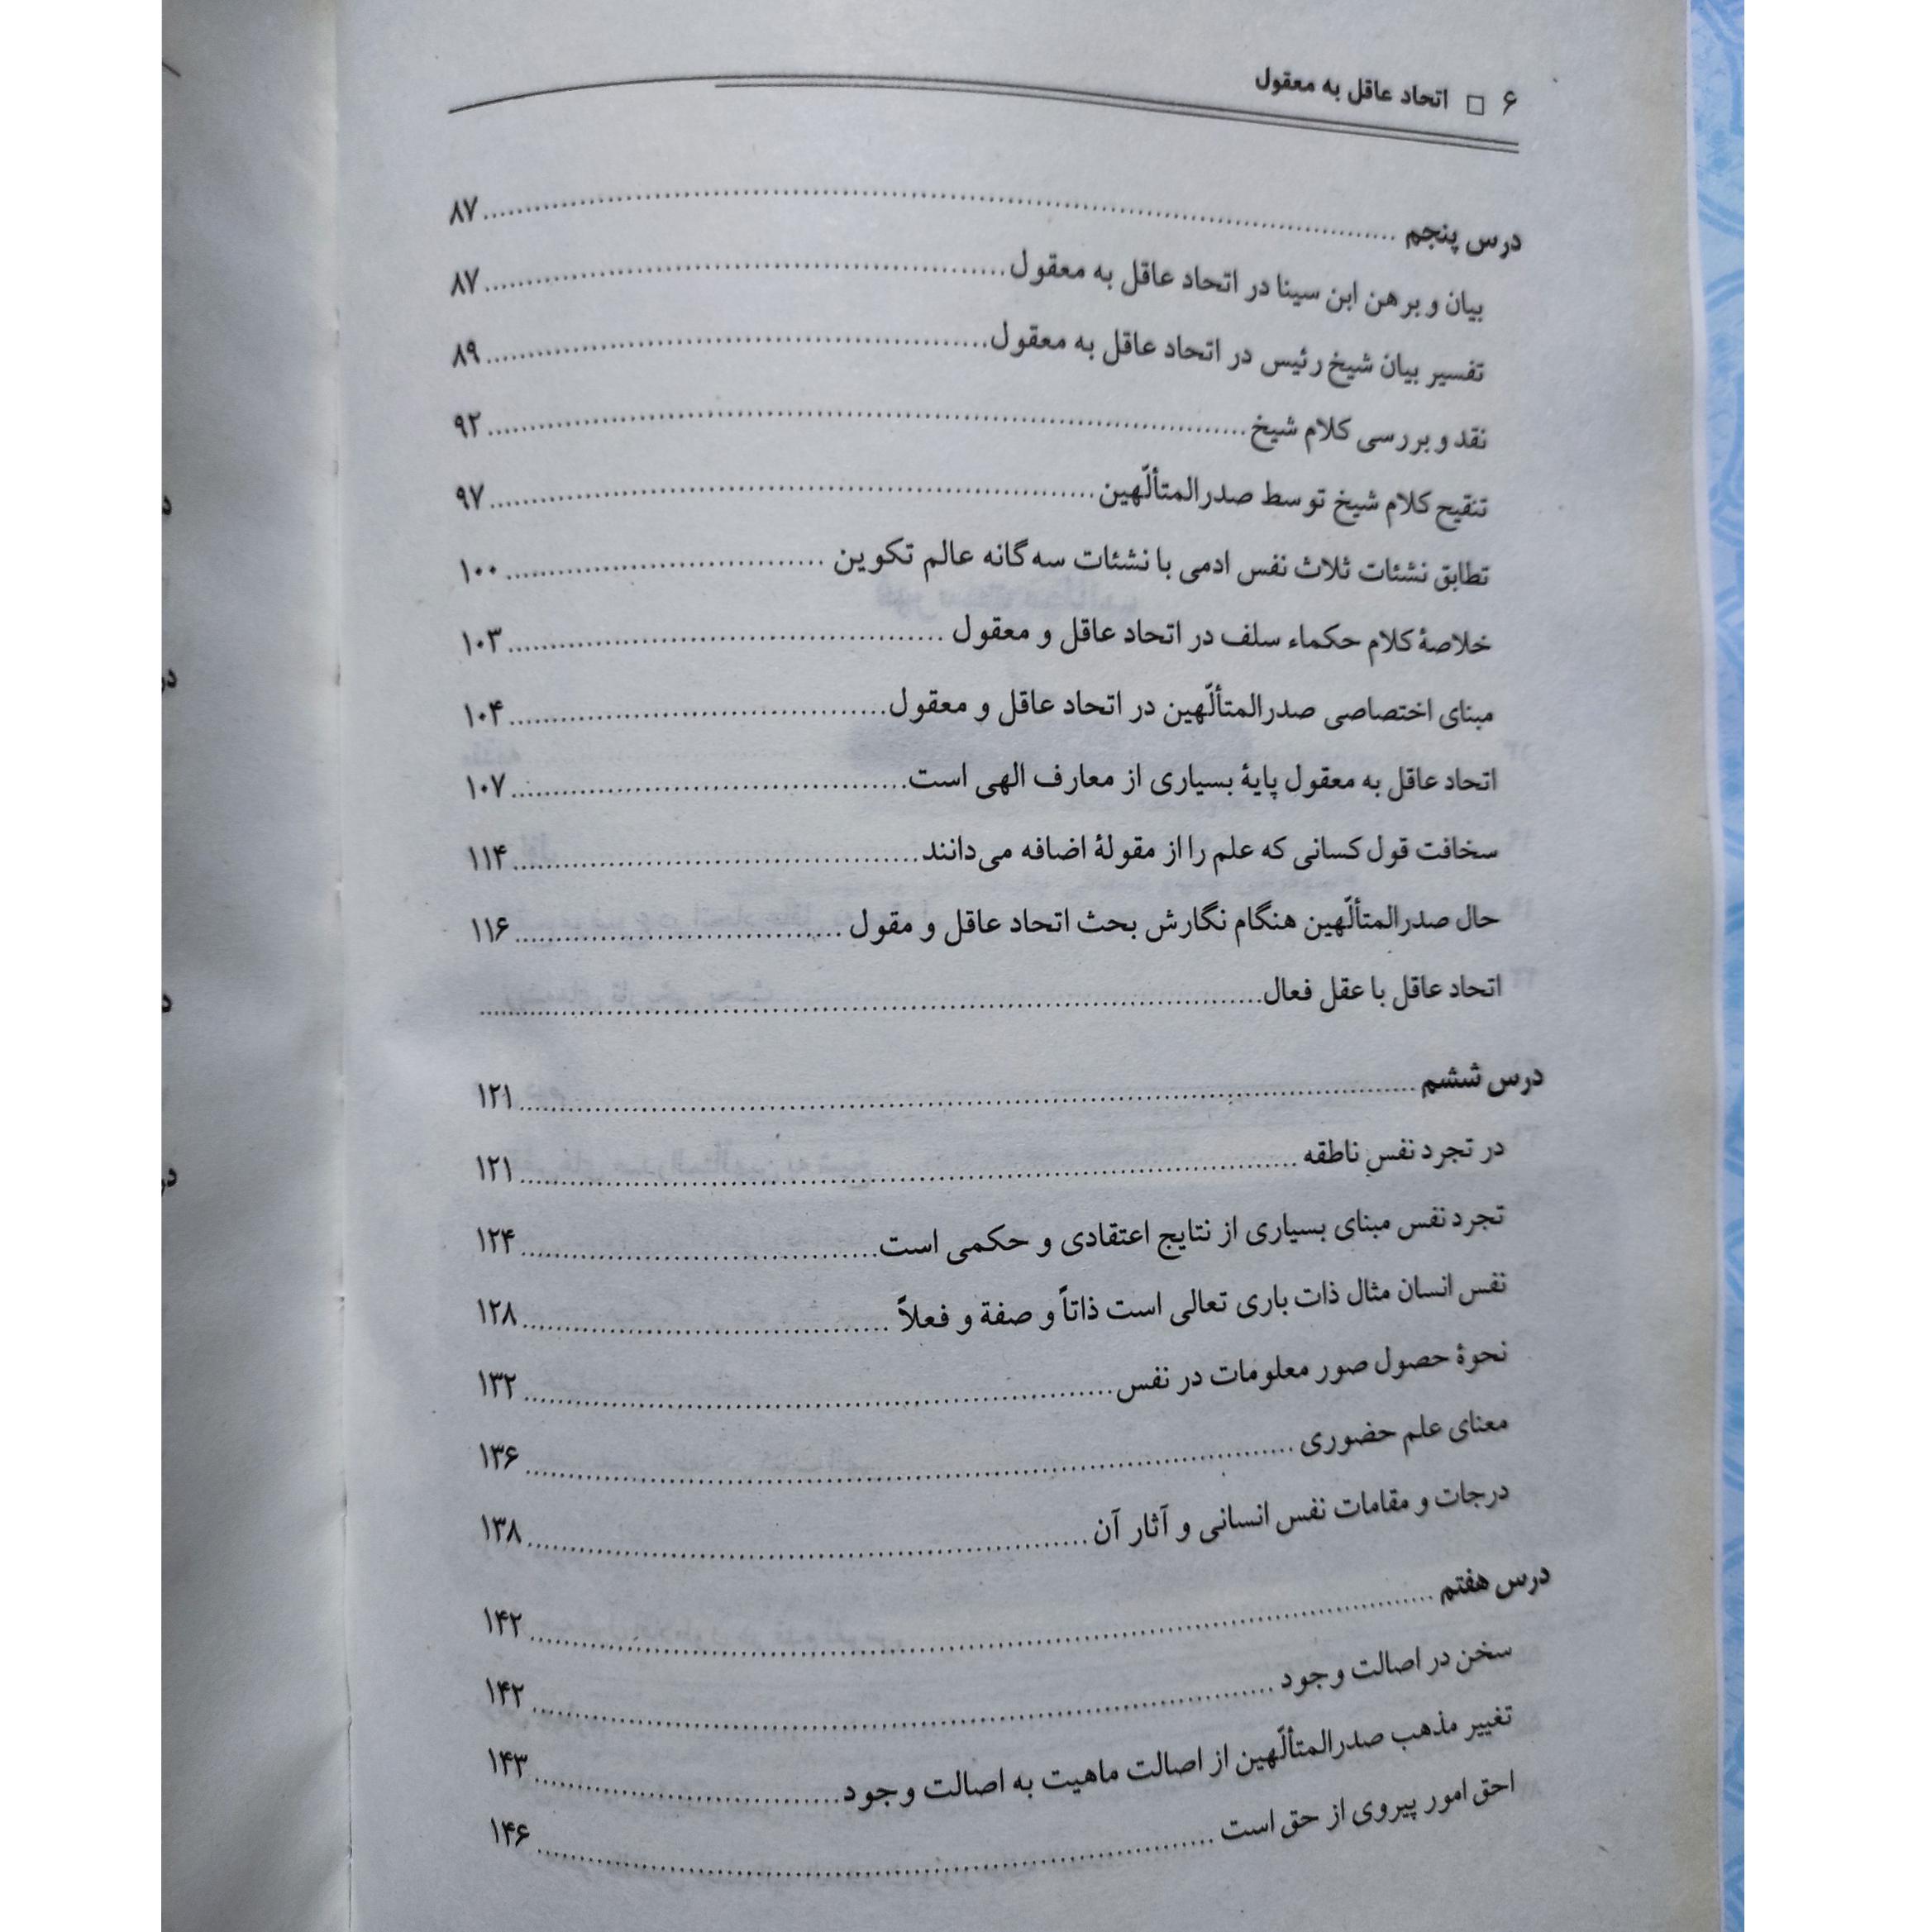 ۶ □ اتحاد عاقل به معقول
درس پنجم ........ ۸۷
بیان و برهن ابن سینا در اتحاد عاقل به معقول ........ ۸۷
تفسیر بیان شیخ رئیس در اتحاد عاقل به معقول ........ ۸۹
نقد و بررسی کلام شیخ ........ ۹۲
تنقیح کلام شیخ توسط صدرالمتألّهین ........ ۹۷
تطابق نشئات ثلاث نفس ادمی با نشئات سه‌گانه عالم تکوین ........ ۱۰۰
خلاصهٔ کلام حکماء سلف در اتحاد عاقل و معقول ........ ۱۰۳
مبنای اختصاصی صدرالمتألّهین در اتحاد عاقل و معقول ........ ۱۰۴
اتحاد عاقل به معقول پایهٔ بسیاری از معارف الهی است ........ ۱۰۷
سخافت قول کسانی که علم را از مقولهٔ اضافه می‌دانند ........ ۱۱۴
حال صدرالمتألّهین هنگام نگارش بحث اتحاد عاقل و مقول ........ ۱۱۶
اتحاد عاقل با عقل فعال ........
درس ششم ........ ۱۲۱
در تجرد نفسِ ناطقه ........ ۱۲۱
تجرد نفس مبنای بسیاری از نتایج اعتقادی و حکمی است ........ ۱۲۴
نفس انسان مثال ذات باری تعالی است ذاتاً و صفة و فعلاً ........ ۱۲۸
نحوهٔ حصول صور معلومات در نفس ........ ۱۳۲
معنای علم حضوری ........ ۱۳۶
درجات و مقامات نفس انسانی و آثار آن ........ ۱۳۸
درس هفتم ........ ۱۴۲
سخن در اصالت وجود ........ ۱۴۲
تغییر مذهب صدرالمتألّهین از اصالت ماهیت به اصالت وجود ........ ۱۴۳
احق امور پیروی از حق است ........ ۱۴۶